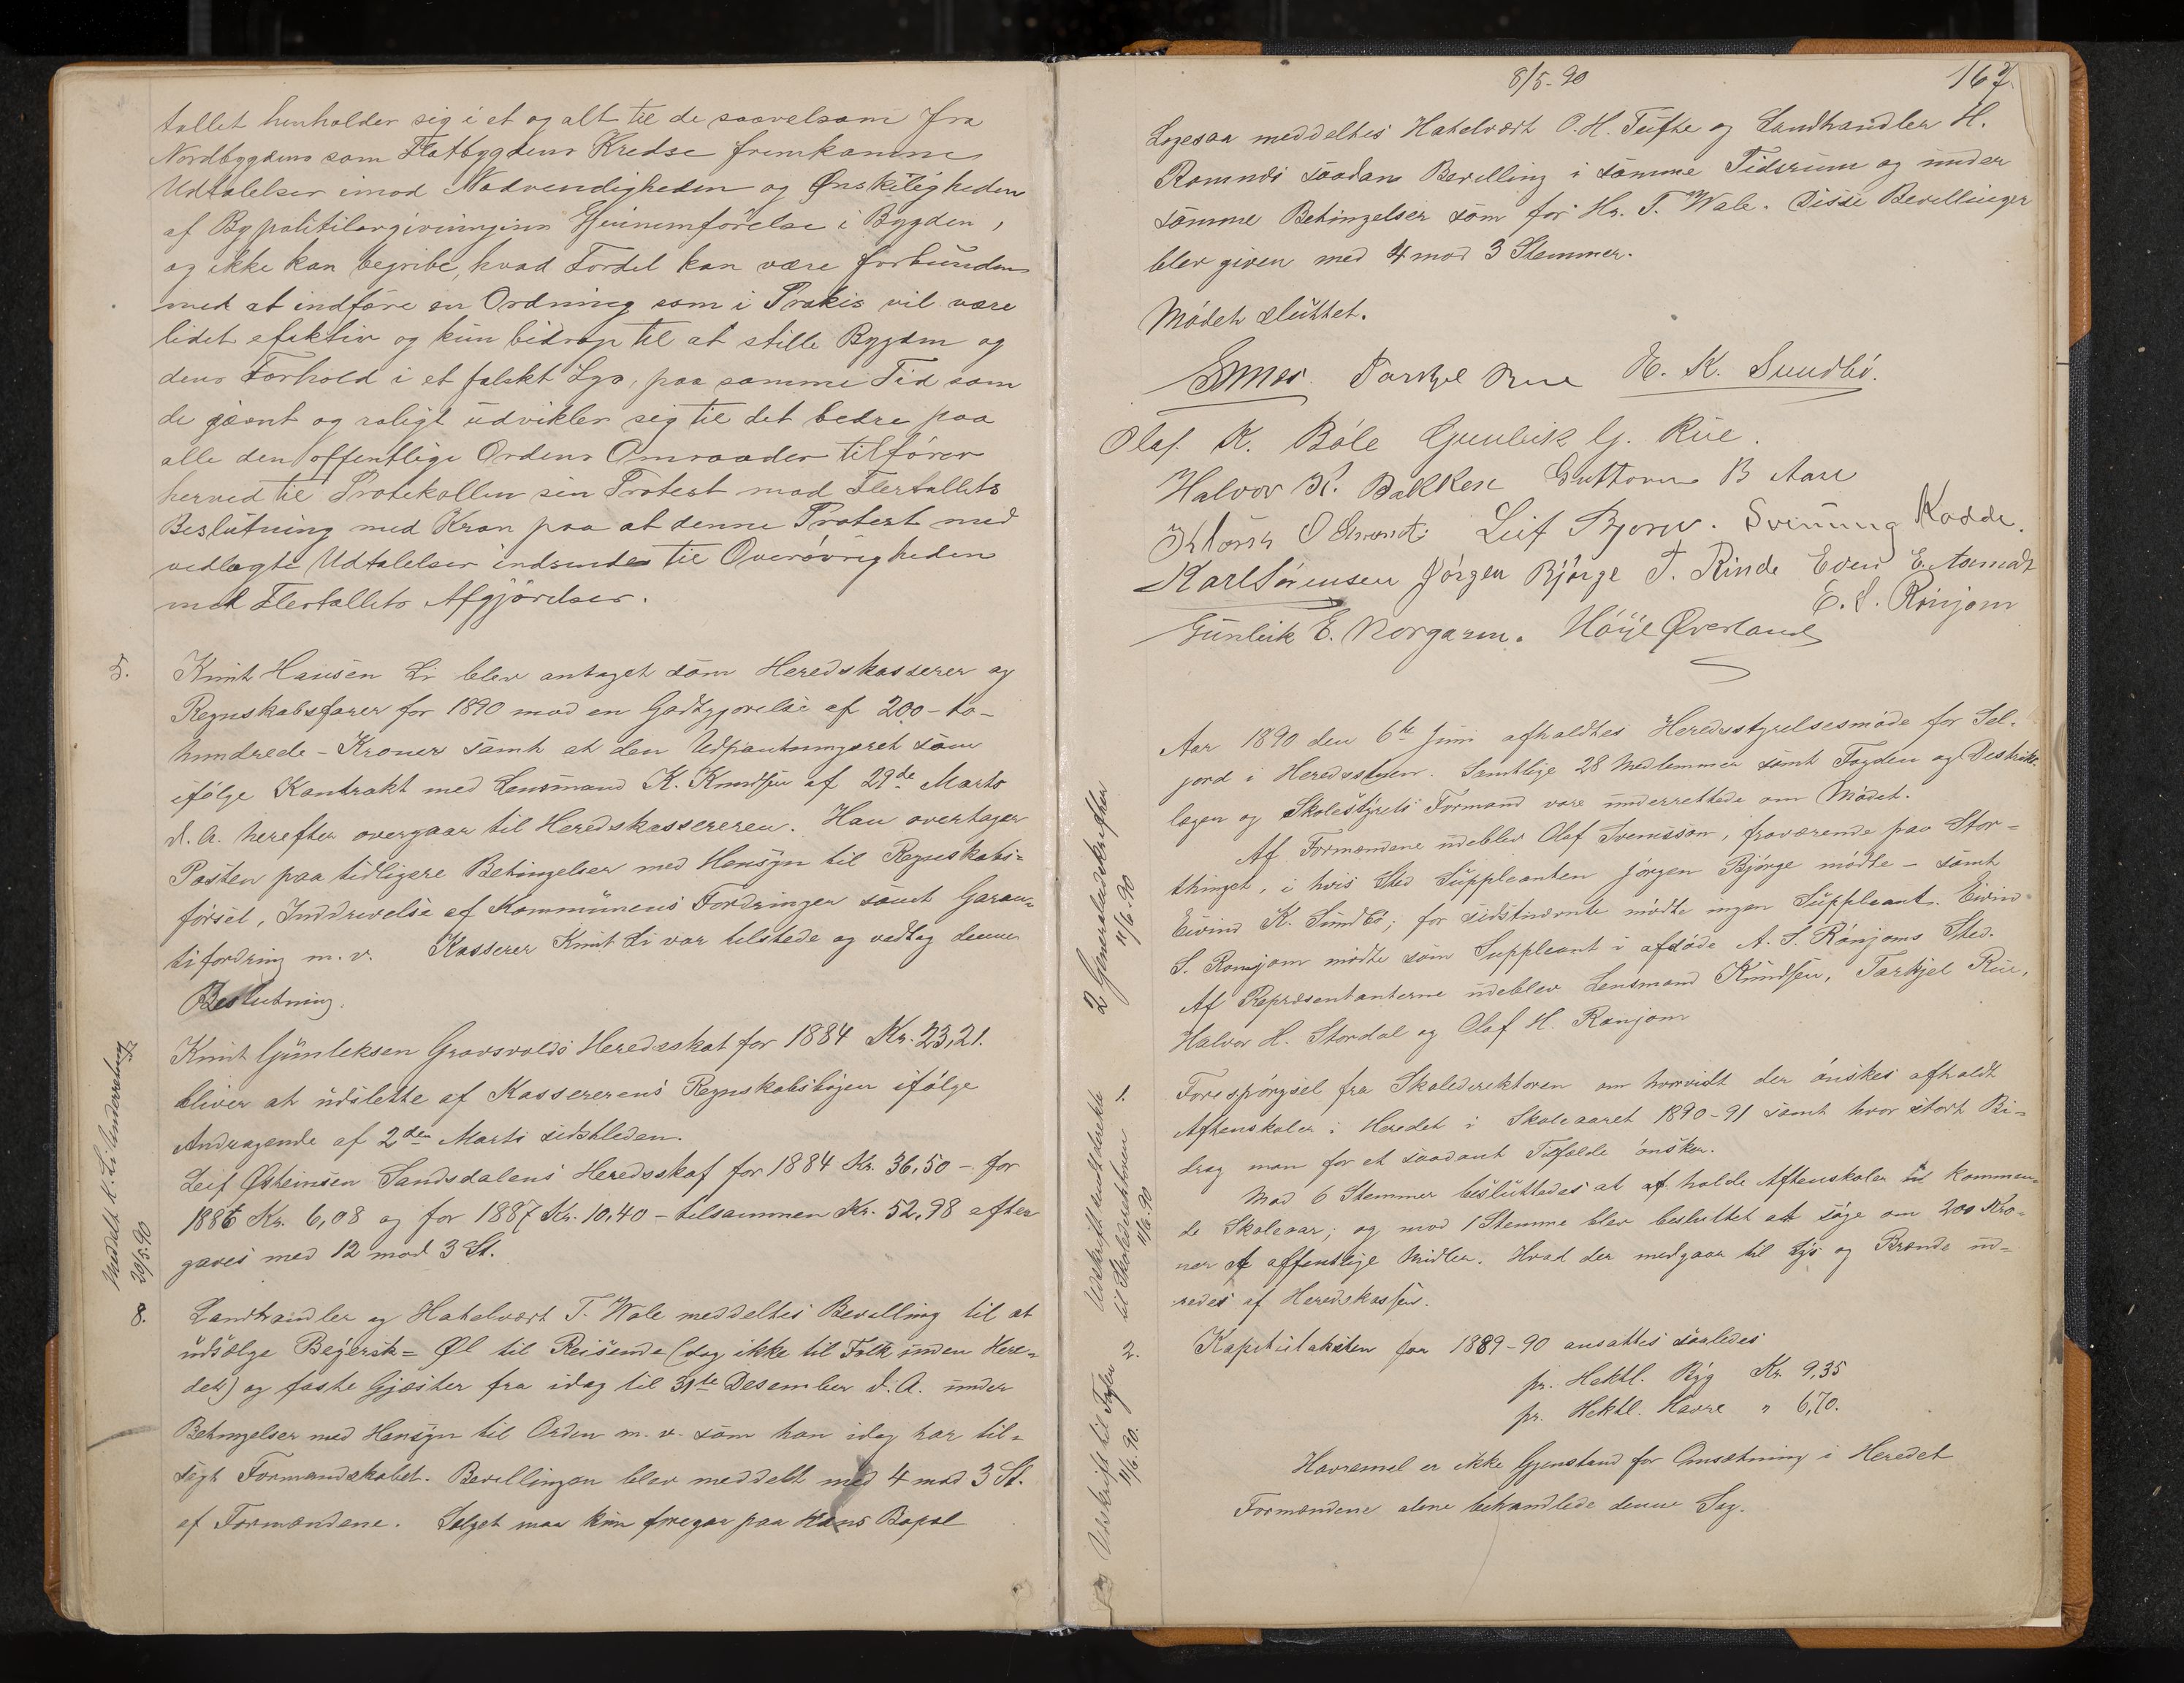 tallet henholder sig i et og alt til de saavelsom fra
Nordbygdens som Flatbygdens Kredse fremkomne
Udtalelser imod Nødvendigheden og Ønskeligheden
af Bypolitilovgivningens Gjennemførelse i Bygden,
og ikke kan begribe, hvad Fordel kan være forbunden
med at indføre en Ordning som i Praksis vil være
lidet efektiv og kun bidrage til at stille Bygden og
dens Forhold i et falskt Lys, paa samme Tid som
de jævnt og roligt udvikler sig til det bedre paa
alle den offentlige Ordens Omraader tilfører
herved til Protokollen sin Protest mod Flertallets
Beslutning med Krav paa at denne Protest med
vedlagte Udtalelser indsendes til Overøvrigheden
med Flertallets Afgjørelser.
5. Knut Hansen Li blev antaget som Heredskasserer og
Regnskabsfører for 1890 mod en Godtgjørelse af 200 - to-
hundrede - Kroner samt at den Udpantningsret som
ifølge Kontrakt med Lensmand K. Knudsen af 29de Marts
d. A. herefter overgaar til Heredskassereren. Han overtager
Posten paa tidligere Betingelser med Hensyn til Regnskabs=
førsel, Inddrivelse af Kommunens Fordringer samt Garan=
tifordring m. v. Kasserer Knut Li var tilstede og vedtog denne
Beslutning.
Meddelt K. Li Underretning
20/5. 90
Knut Gunleksen Gravsvolds Heredsskat for 1884 Kr. 23,21.
bliver at udslette af Kassererens Regnskabsbøger ifølge
Andragende af 2den Marts sidstleden.
Leif Østeinsen Sandsdalens Heredsskat for 1884 Kr. 36,50 - for
1886 Kr. 6,08 og for 1887 Kr. 10,40 - tilsammen Kr. 52,98 efter
gaves med 12 mod 3 St.
8. Landhandler og Hotelvært T. Wale meddeltes Bevilling til at
udsælge Bayersk= Øl til Reisende (dog ikke til Folk inden Here=
det) og faste Gjæster fra idag til 31te Desember d. A. under
Betingelser med Hensyn til Orden m. v. som han idag har til=
sagt Formandskabet. Bevillingen blev meddelt med 4 mod 3 St.
af Formændene. Salget maa kun foregaa paa Hans Bopæl
8/5-90
167.
Ligesaa meddeltes Hotelvært O. H. Tufte og Landhandler H.
Romnæs saadan Bevilling i samme Tidsrum og under
samme Betingelser som for Hr. T. Wale. Disse Bevillinger
blev given med 4 mod 3 Stemmer.
Mødet sluttet.
Torkjel Rue E. K. Sundbö.
Olaf K. Böle Gunleik G. Rue.
Halvor K. Bakken Guttorm B Aase
Leif Bjorv. Svenung Kødde.
Karl Sørensen Jörgen Björge T. Rinde Even E.
E. S. Rönjom
Gunleik E. Norgaren. Höije Øverland
Aar 1890 den 6te Juni afholdtes Heredsstyrelsesmøde for Sel-
jord i Heredsstuen. Samtlige 28 Medlemmer samt Fogden og Destrikts-
lægen og Skolestyrets Formand vare underrettede om Mødet.
Af Formændene udeblev Olaf Svensson, fraværende paa Stor=
thinget, i hvis Sted Suppleanten Jørgen Bjørge mødte - samt
Eivind K. Sundbø; for sidstnævnte mødte ingen Suppleant. Eivind
S. Rønjom mødte som Suppleant i afdøde A. S. Rønjoms Sted.
Af Repræsentanterne udeblev Lensmand Knudsen, Tarkjel Rue,
Halvor H. Stordal og Olaf H. Rønjom
2 Genera
11/6. 90
Udskrift sendt direkte
til Skoledirektøren
11/6. 90
1. Forespørgsel fra Skoledirektøren om hvorvidt der ønskes afholdt
Aftenskoler i Heredet i Skoleaaret 1890-91 samt hvor stort Bi=
drag man for et saadant Tilfælde ønsker.
Mod 6 Stemmer besluttedes at afholde Aftenskoler til kommen=
de Skoleaar; og mod 1 Stemme blev besluttet at søge om 200 Kro=
ner af offentlige Midler. Hvad der medgaar til Lys og Brænde ud=
redes af Heredskassen.
Udskrift til Fogden
11/6. 90.
2. Kapitelstaksten for 1889-90 ansattes saaledes
pr. Hektl. Byg Kr. 9,35
pr. Hektl. Havre " 6,70.
Havremel er ikke Gjenstand for Omsætning i Heredet
Formændene alene behandlede denne Sag.